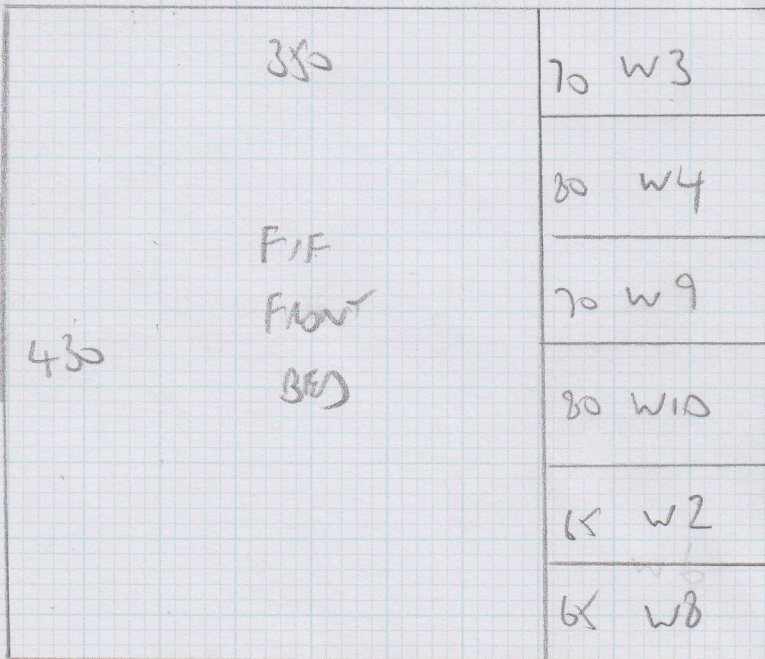 350
F/F
FRONT
BED
430
70 W3
80 W4
70 W9
80 W10
65 W2
65 W8